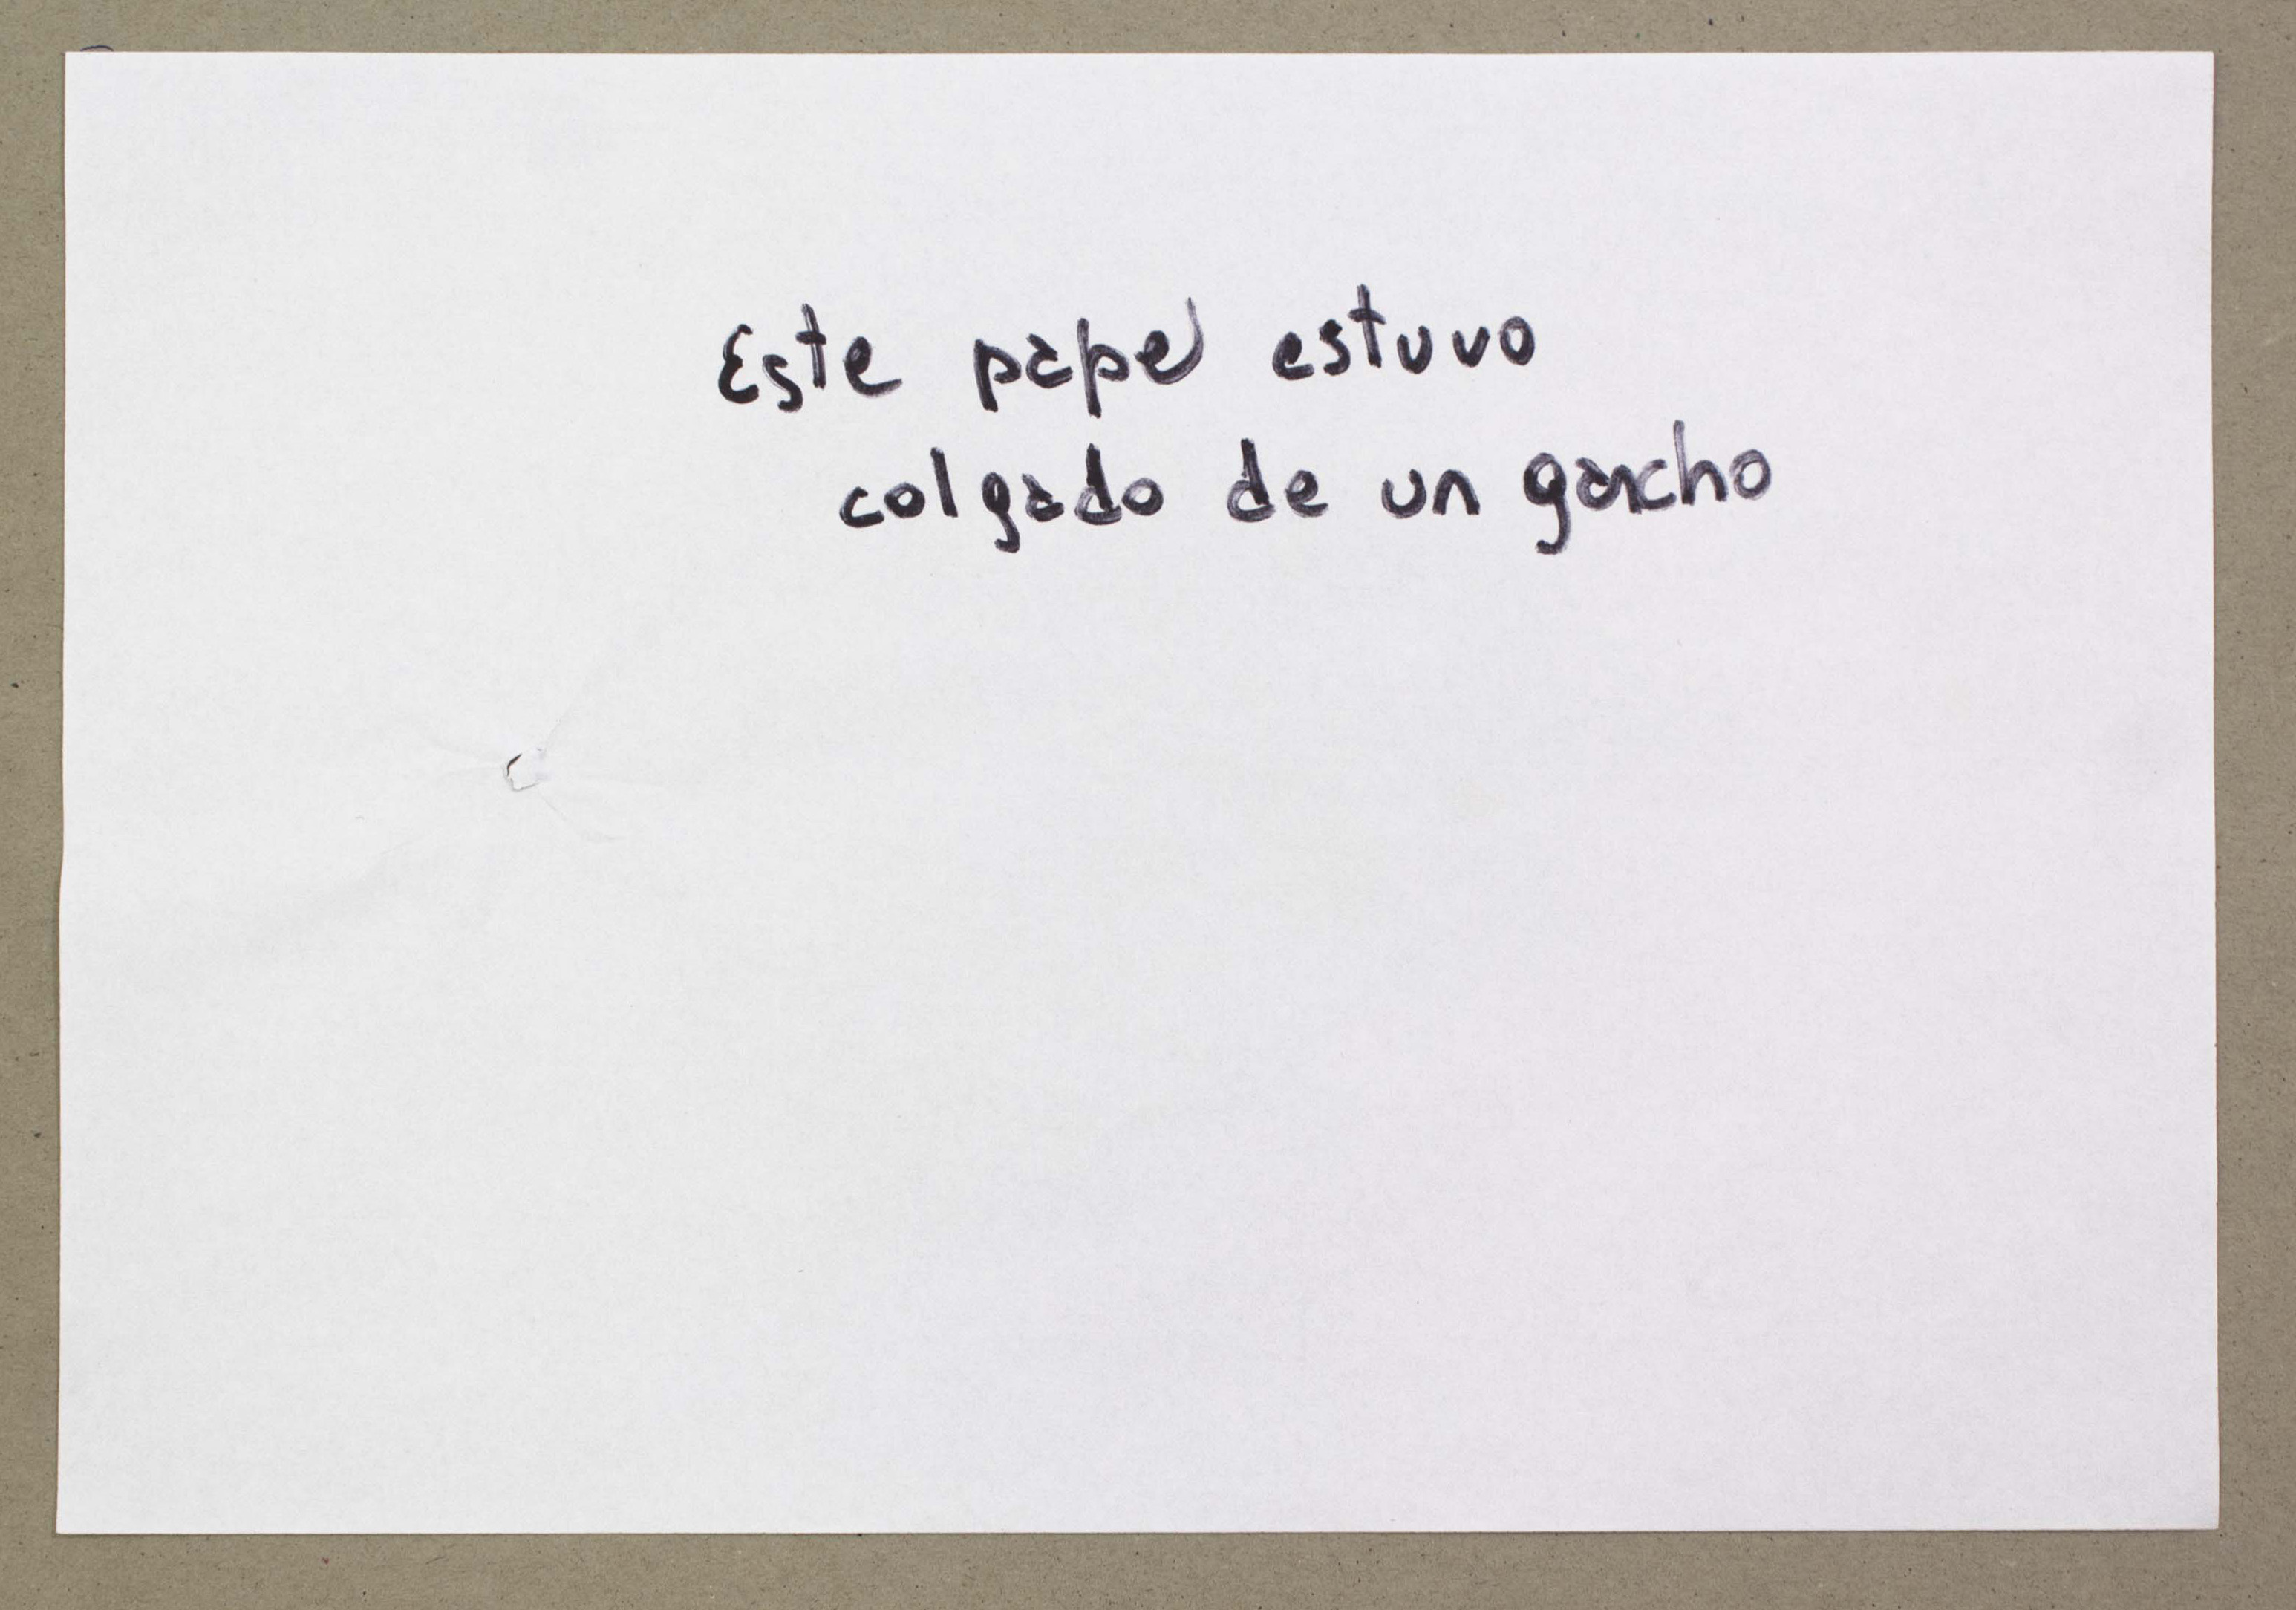 Este papel estuvo
colgado de un gancho